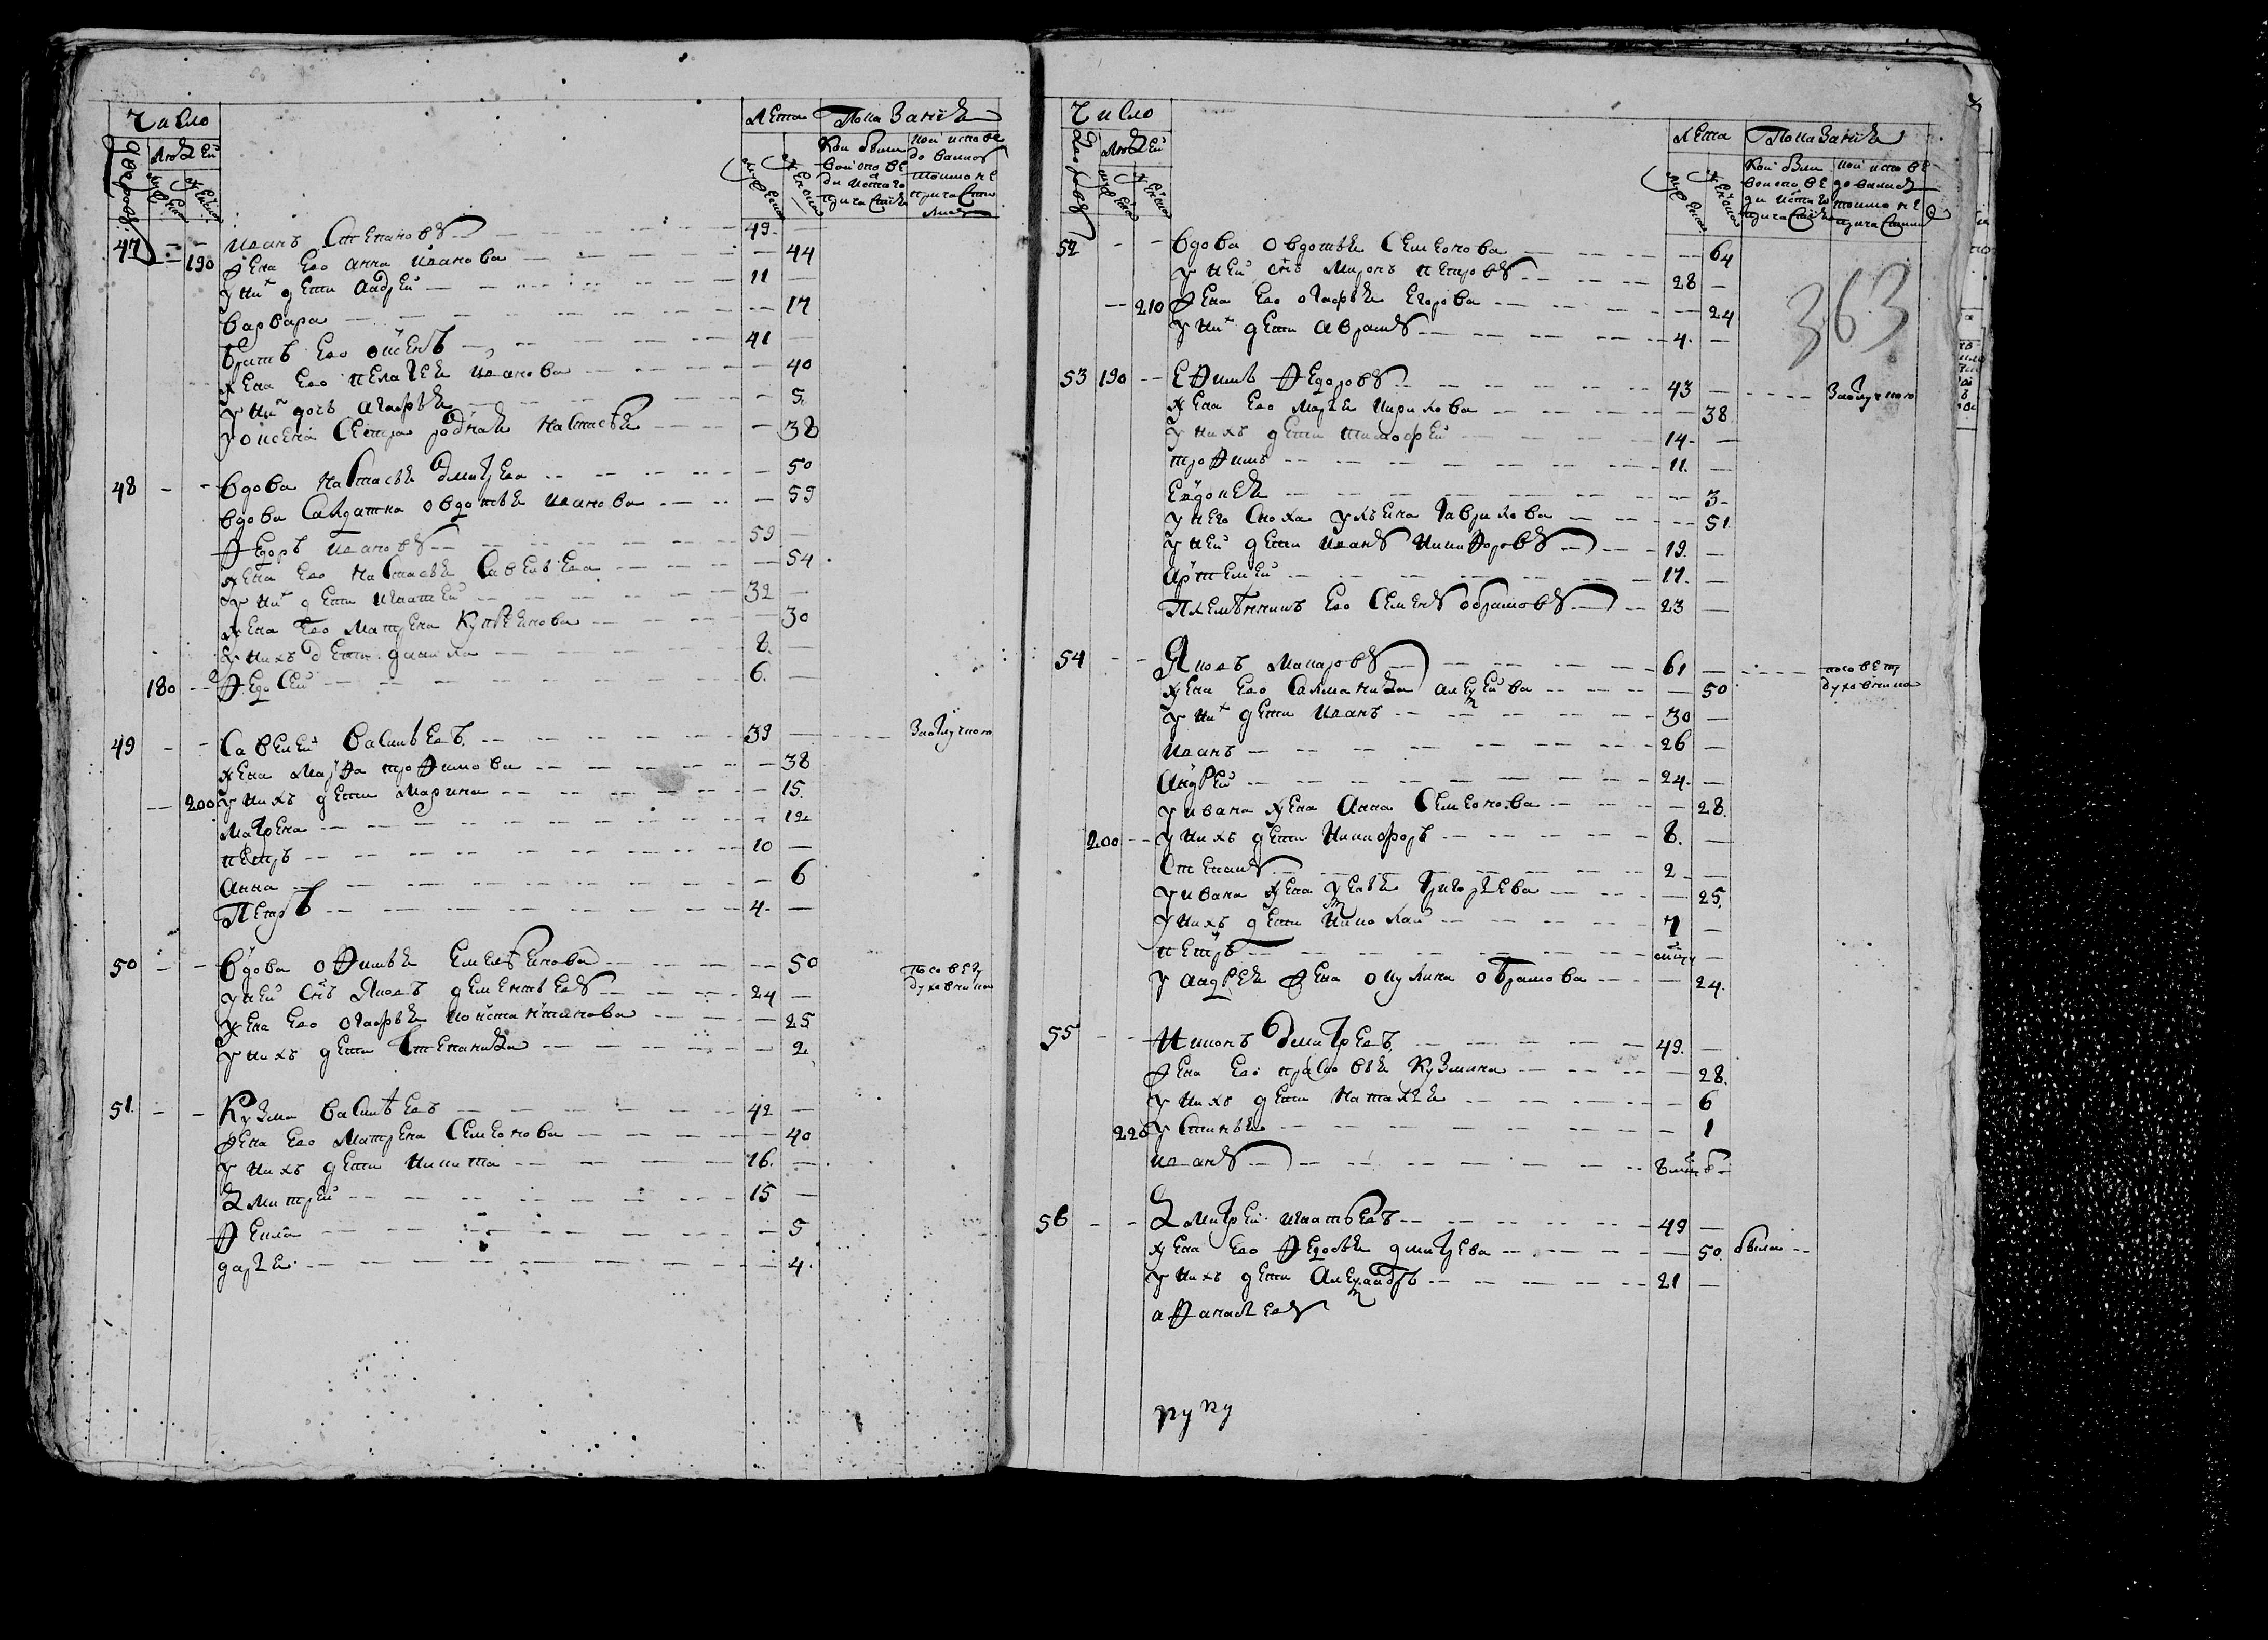 Число
Дворовъ
Людей
мужеска
женска
Лета
мужеска
женска
Показание
кои были во исповеди и святаго причастия
кои исповедовались токмо не причастились
47 - - Иванъ Степановъ 49 -
190 жена ево анна иванова - 44
у них дети андрей 11 -
варвара - 17
братъ ево 41 -
жена ево пелагея иванова - 40
у них дочь агафья - 5
сестра родная настасья - 38
48 - - вдова настасья дмитрева - 50
вдова салдатка овдотья иванова - 59
Федоръ ивановъ 59 -
жена ево настасья савельева - 54
у них дети игнатей 32 -
жена ево матрена - 30
у нихъ дети данила 8 -
180 - Федосей 6 -
49 - - Савелей васильевъ 39 - за отлучкою
жена марфа трофимова - 38
- 200 у нихъ дети марина - 15
матрена - 12
петръ 10 -
анна - 6
Петръ 4 -
50 - - вдова офимья емельянова - 50 по совету духовника
у ней снъ Яковъ дементьевъ 24 -
жена ево огафья костантинова - 25
у нихъ дети степанида - 2
51 - - Кузма васильевъ 42 -
жена ево матрена семенова - 40
у нихъ дети никита 16 -
Дмитрей 15 -
Фекла - 5
дарья - 4
Число
Дворовъ
Людей
мужеска
женска
Лета
мужеска
женска
Показание
кои были во исповеди и святаго причастия
кои исповедовались токмо не причастились
363
52 - - вдова овдотья семенова - 64
у ней снъ миронъ петровъ 28 -
- 210 жена ево огафья егорова - 24
у них дети аврамъ 4 -
53 190 - Ефимъ Федоровъ 43 - за отлучкою
жена ево марья кирилова - 38
у нихъ дети тимофей 14 -
трофимъ 11 -
евдокея - 3
у него сноха ульяна гаврилова - 51
у ней дети иванъ никифоровъ 19 -
артемей 17 -
Племянникъ ево семенъ обрамовъ 23 -
54 - - Яковъ макаровъ 61 - по совету духовника
жена ево саламанида алексеива - 50
у них дети иванъ 30 -
иванъ 26 -
андрей 24 -
у ивана жена анна семенова - 28
200 - у нихъ дети никифоръ 8 -
степанъ 2 -
у ивана жена григорьева - 25
у нихъ дети николай 7 -
петръ -
у андрея жена окулина обрамова - 24
55 - - Никонъ дмитревъ 49 -
жена ево прасковья кузмина - 28
у нихъ дети наталья - 6
220 устинья - 1
иванъ
56 - - Дмитрей игнатьевъ 49 -
жена ево федосья дмитрева - 50 была
у нихъ дети александръ 21 -
афанасьевъ